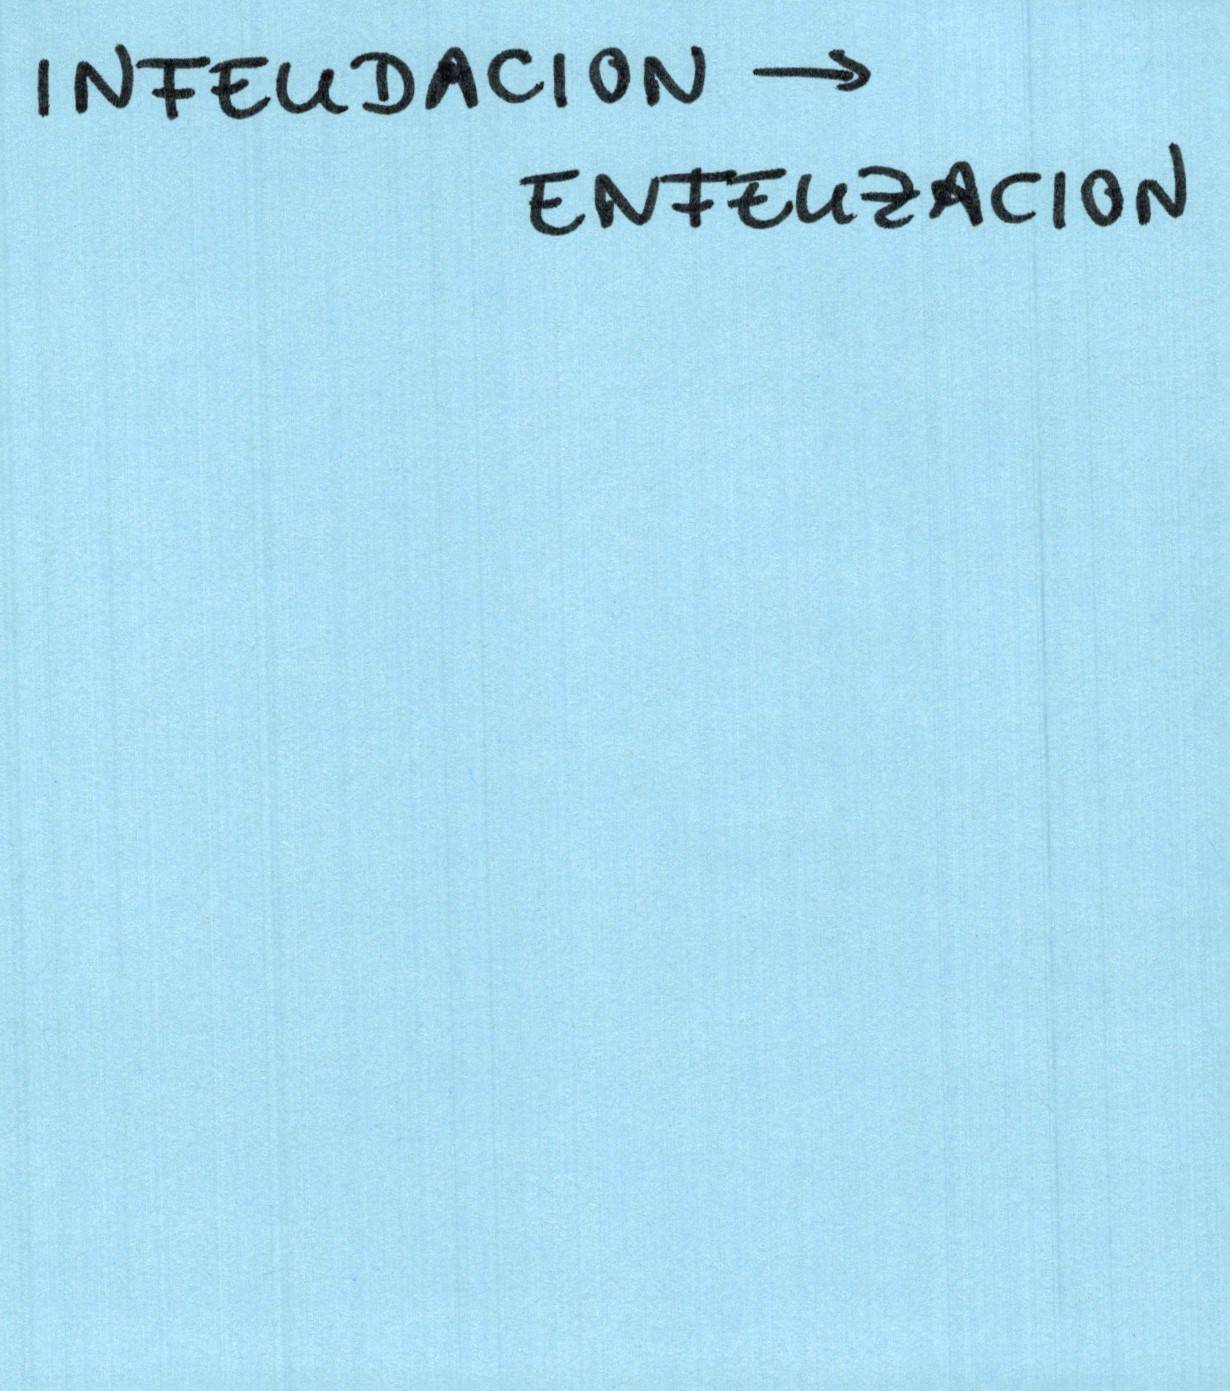 INFEUDACION →
ENFEUZACION